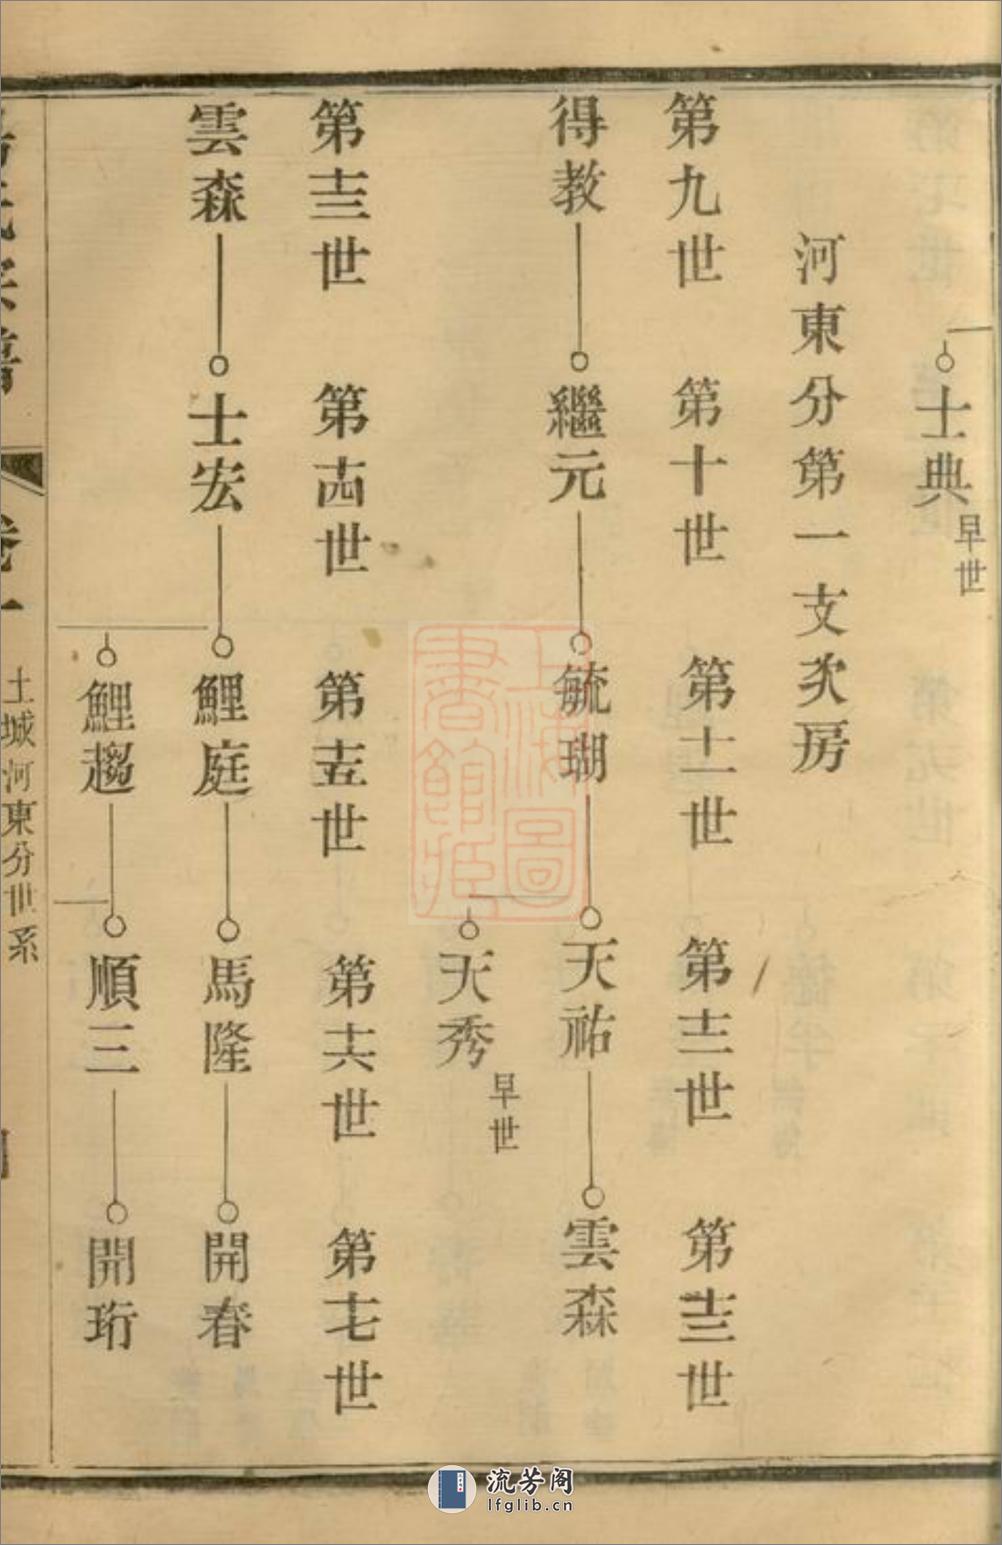 士典 早世
河東分第一支次房
第九世 第十世 第十一世 第十二世 第十三世
得教 繼元 毓瑚 天祐 雲森
天秀 早世
第十三世 第十四世 第十五世 第十六世 第十七世
雲森 士宏 鯉庭 馬隆 開春
鯉趨 順三 開珩
氏宗譜 卷一 土城河東分世系
上海圖書館藏
流芳阁
lfglib.cn